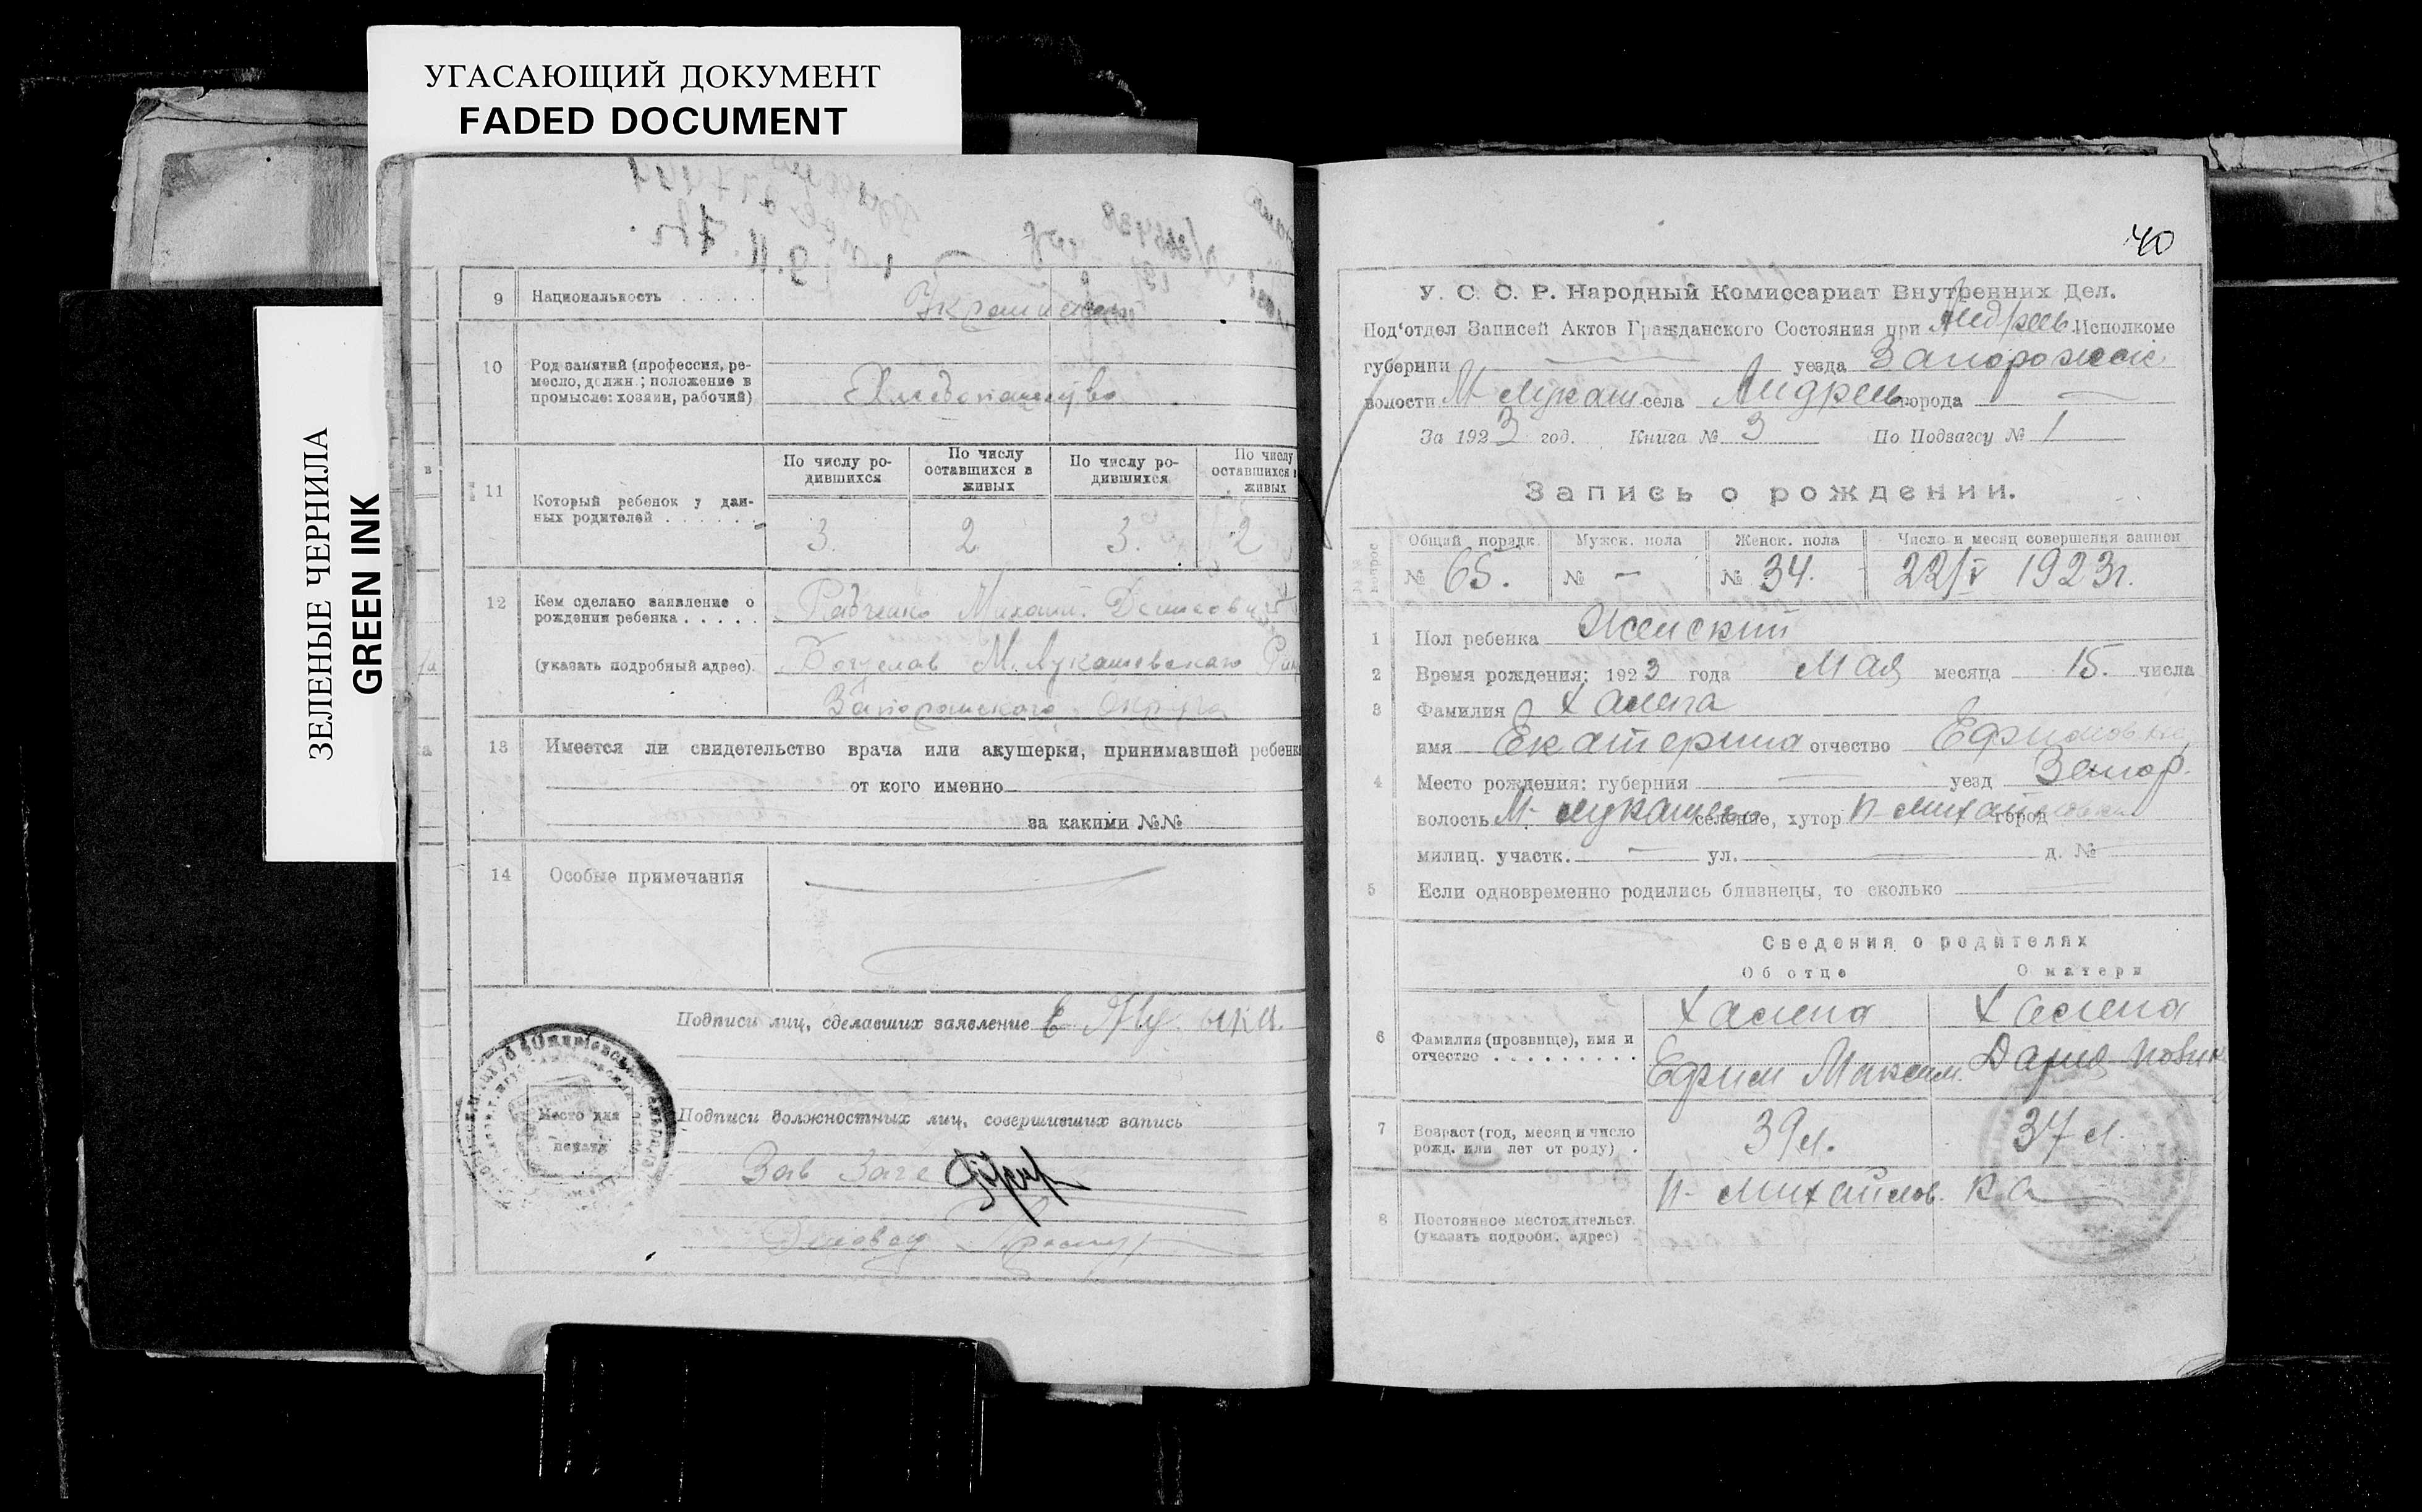 УГАСАЮЩИЙ ДОКУМЕНТ
FADED DOCUMENT
ЗЕЛЕНЫЕ ЧЕРНИЛА
GREEN INK
9 Национальность . . . . . Украинская
10 Род занятий (профессия, ре-
месло, должн.; положение в
промысле: хозяин, рабочий)
Хлебопашество
11 Который ребенок у дан-
ных родителей . . . . . .
По числу ро-
дившихся
По числу
оставшихся в
живых
По числу ро-
дившихся
По числу
оставшихся в
живых
3. 2 3. 2
12 Кем сделано заявление о
рождении ребенка . . . . .
(указать подробный адрес).
Михаил Денисович
Богуслав М. Лукашевского
Запорожского Округа
13 Имеется ли свидетельство врача или акушерки, принимавшей ребенка
от кого именно
за какими №№
14 Особые примечания
Подписи лиц, сделавших заявление
Место для
печати
Подписи должностных лиц, совершивших запись
Зав Загс
40
У. С. С. Р. Народный Комиссариат Внутренних Дел.
Под'отдел Записей Актов Гражданского Состояния при Андреев. Исполкоме
губернии — уезда Запорожск
волости М Лукаш села Андреев города —
За 1923 год. Книга № 3 По Подзагсу № 1
Запись о рождении.
Общий порядк. Мужск. пола Женск. пола Число и месяц совершения записи
№ 65. № – № 34. 22/V 1923г.
1 Пол ребенка Женский
2 Время рождения: 1923 года Мая месяца 15. числа
3 Фамилия Халепа
имя Екатерина отчество Ефимовна
4 Место рождения: губерния — уезд Запор.
волость М- Лукашево селение, хутор Н- Михайловка город
милиц. участк. – ул. — д. №
5 Если одновременно родились близнецы, то сколько
Сведения о родителях
Об отце О матери
6 Фамилия (прозвище), имя и
отчество . . . . . . . . . .
Халепа Халепа
Ефим Максим. Дария
7 Возраст (год, месяц и число
рожд. или лет от роду) .
39 л. 37 л.
8 Постоянное местожительст.
(указать подробн. адрес)
Н- Михайлов. ка